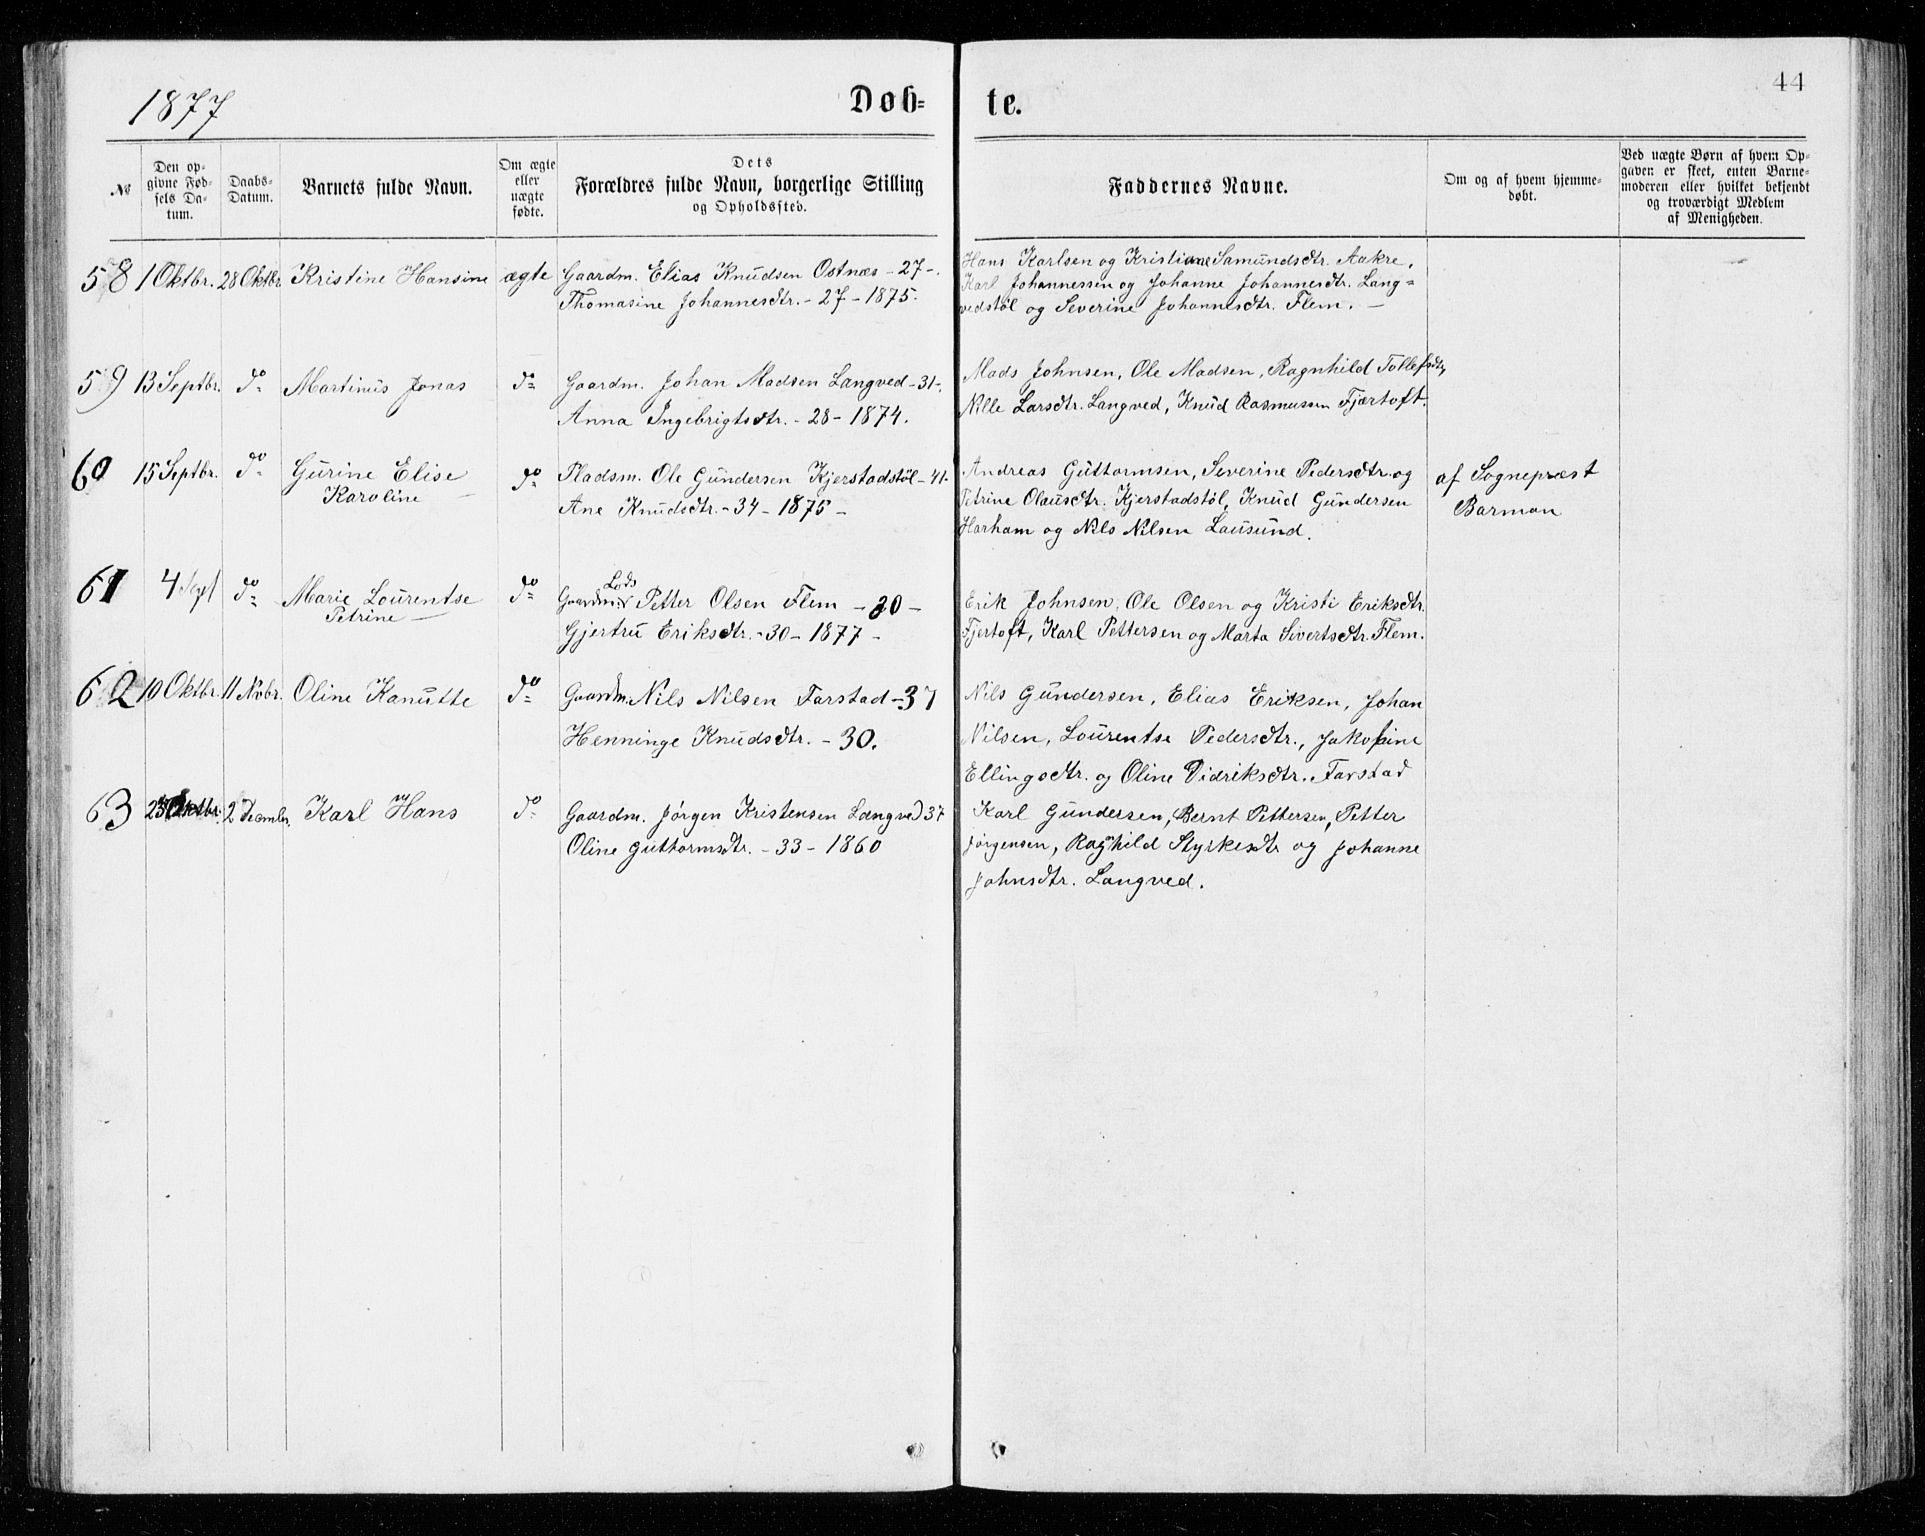 1877
Døb-
te.
44
№
Den op-
givne Fød-
sels Da-
tum.
Daabs-
Datum.
Barnets fulde Navn.
Om ægte
eller
uægte
fødte.
Dets
Forældres fulde Navn, borgerlige Stilling
og Opholdssted.
Faddernes Navne.
Om og af hvem hjemme-
døbt.
Ved uægte Børn af hvem Op-
gaven er skeet, enten Barne-
moderen eller hvilket bekjendt
og troværdigt Medlem
af Menigheden.
58 1 Oktbr. 28 Oktbr Kristine Hansine ægte Gaardm. Elias Knudsen Ostnæs - 27 -.
Thomasine Johannesdtr. - 27 - 1875.
Hans Karlsen og Kristiane Samundsdtr. Aakre.
Karl Johannessen og Johanne Johannesdtr. Lang=
vedstöl og Severine Johannesdtr. Flem. -
59 13 Septbr. do Martinus Jonas do Gaardm. Johan Madsen Langved - 31 -.
Anna Ingebrigtsdtr. - 28 - 1874.
Mads Johnsen, Ole Madsen, Ragnhild Tollefsdtr,
Nille Larsdtr. Langved, Knud Rasmussen Fjærtoft.
60 15 Septbr. do Gurine Elise do Pladsm. Ole Gundersen Kjerstadstöl - 41.
Karoline -
Ane Knudsdtr. - 34 - 1875 -
Andreas Guttormsen, Severine Pedersdtr. og
Petrine Olausdtr. Kjerstadstöl, Knud Gundersen
Harham og Nils Nilsen Lausund.
af Sognepræst
Barman
61 4 Sept do Marie Lourentse do Gaardm. Lods Petter Olsen Flem - 30 -
Petrine -
Gjertru Eriksdtr. - 30 - 1877 -
Erik Johnsen, Ole Olsen og Kristi Eriksdtr.
Fjertoft, Karl Pettersen og Marta Sivertsdtr. Flem.
62 10 Oktbr. 11 Nvbr. Oline Kanutte do Gaardm. Nils Nilsen Farstad - 37
Henninge Knudsdtr. - 30.
Nils Gundersen, Elias Eriksen, Johan
Nilsen, Lourentse Pedersdtr., Jakobine
Ellingsdtr. og Oline Didriksdtr. Farstad
63 Oktbr. 2 Decmbr. Karl Hans do Gaardm. Jörgen Kristensen Langved 37
Oline Guttormsdtr. - 33 - 1860
Karl Gundersen, Bernt Pettersen, Petter
Jörgensen, Ragnhild Styrkesdtr og Johanne
Johnsdtr. Langved.